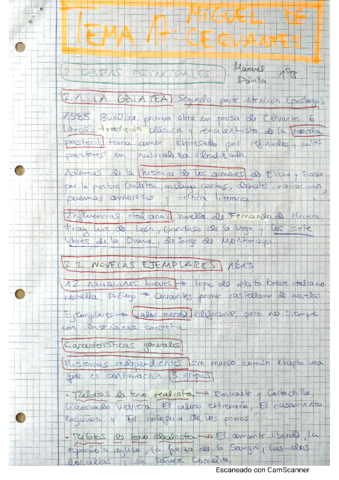 TEMA 17: MIGUEL DE CERVANTES
2. OBRAS PRINCIPALES
Manuel 1ºB
Dávila
2.1. LA GALATEA Segunda parte intención (prólogo)
1585 Bucólica, primera obra en prosa de Cervantes 6
libros, tradición clásica y renacentista de la novela
pastoril tema amor expresado por refinados, cultos
pastores en naturaleza idealizada
Además de la historia de los amores de Elicio y Erastro
por la pastora Galatea incluye cartas, debates, narración,
poemas amorosos crítica literaria
Influencias italianas, huella de Fernando de Herrera
Fray Luis de León, Garcilaso de la Vega y los siete
libros de la Diana de Jorge de Montemayor.
2.2. NOVELAS EJEMPLARES 1613
12 narraciones breves → tipo de relato breve italiano
novella, Prólogo → Cervantes primer castellano de novelas
Ejemplares → valor moral edificante, pero no siempre
con enseñanza concreta
Características generales
Historias independientes sin marco común excepto una
que es continuación 3 grupos
• Relatos de tono realista → Rinconete y Cortadillo
Licenciado Vidriera, El celoso extremeño, El casamiento
engañoso y El coloquio de los perros
• Relatos de tono idealista → El amante liberal, La
española inglesa, La fuerza de la Sangre, Las dos
doncellas y La Señora Cornelia
Escaneado con CamScanner